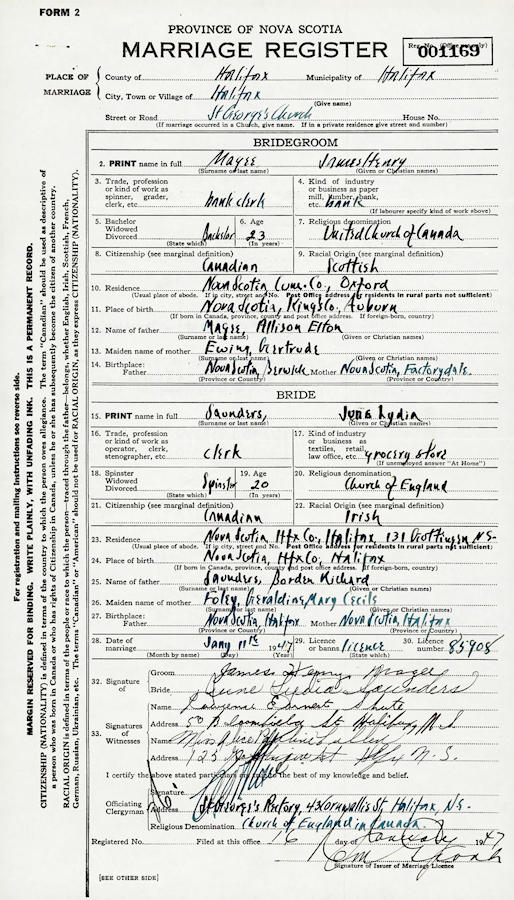 FORM 2
PROVINCE OF NOVA SCOTIA
MARRIAGE REGISTER
Reg. No. (Office use only)
001169
PLACE OF MARRIAGE
County of Halifax Municipality of Halifax
City, Town or Village of Halifax
(Give name)
Street or Road St George's Church House No.
(If marriage occurred in a Church, give name. If in a private residence give street and number)
BRIDEGROOM
2. PRINT name in full Magee James Henry
(Surname or last name) (Given or Christian names)
3. Trade, profession or kind of work as spinner, grader, clerk, etc. bank clerk
4. Kind of industry or business as paper mill, lumber, bank, etc. bank
(If labourer specify kind of work above)
5. Bachelor Widowed Divorced Bachelor
(State which)
6. Age 23
(In years)
7. Religious denomination
United Church of Canada
8. Citizenship (see marginal definition)
Canadian
9. Racial Origin (see marginal definition)
Scottish
10. Residence Nova Scotia Cum. Co., Oxford
(Usual place of abode. If in city, street and No. Post Office address for residents in rural parts not sufficient)
11. Place of birth Nova Scotia, Kings Co., Auburn
(If born in Canada, province, county and post office address. If foreign-born, country)
12. Name of father Magee, Allison Elton
(Surname or last name) (Given or Christian names)
13. Maiden name of mother Ewing, Gertrude
(Surname or last name) (Given or Christian names)
14. Birthplace: Father Nova Scotia, Berwick Mother Nova Scotia, Factorydale.
(Province or Country) (Province or Country)
BRIDE
15. PRINT name in full Saunders, June Lydia
(Surname or last name) (Given or Christian names)
16. Trade, profession or kind of work as operator, clerk, stenographer, etc. clerk
17. Kind of industry or business as textiles, retail, law office, etc. grocery store
(If unemployed answer "At Home")
18. Spinster Widowed Divorced Spinster
(State which)
19. Age 20
(In years)
20. Religious denomination
Church of England
21. Citizenship (see marginal definition)
Canadian
22. Racial Origin (see marginal definition)
Irish
23. Residence Nova Scotia, Hfx Co., Halifax, 131 N.S.
(Usual place of abode. If in city, street and No. Post Office address for residents in rural parts not sufficient)
24. Place of birth Nova Scotia, Hfx Co, Halifax
(If born in Canada, province, county and post office address. If foreign-born, country)
25. Name of father Saunders, Borden Richard
(Surname or last name) (Given or Christian names)
26. Maiden name of mother Foley, Geraldine, Mary Cecils
(Surname or last name) (Given or Christian names)
27. Birthplace: Father Nova Scotia, Halifax Mother Nova Scotia, Halifax
(Province or Country) (Province or Country)
28. Date of marriage Jany 11th 1947
(Month by name) (Day) (Year)
29. Licence or banns licence
(State which)
30. Licence number 85908
32. Signature of
Groom James Henry Magee
Bride June Lydia Saunders
33. Signatures of Witnesses
Name Ernest Shute
Address 50 St. Halifax, N.S.
Name Miss
Address 123 St Hfx N.S.
I certify the above stated particulars are true to the best of my knowledge and belief.
Signature
Officiating Clergyman
Address St George's Rectory, 43 Cornwallis St Halifax, N.S.
Religious Denomination Church of England in Canada.
Registered No. Filed at this office 16 day of January 1947
Signature of Issuer of Marriage Licence
[SEE OTHER SIDE]
For registration and mailing instructions see reverse side.
MARGIN RESERVED FOR BINDING. WRITE PLAINLY, WITH UNFADING INK. THIS IS A PERMANENT RECORD.
CITIZENSHIP (NATIONALITY) is defined in terms of the country to which the person owes allegiance. The term "Canadian" should be used as descriptive of
a person who was born in Canada or who has rights of Citizenship in Canada, unless he or she has subsequently become the citizen of another country.
RACIAL ORIGIN is defined in terms of the people or race to which the person—traced through the father—belongs, whether English, Irish, Scottish, French,
German, Russian, Ukrainian, etc. The terms "Canadian" or "American" should not be used for RACIAL ORIGIN, as they express CITIZENSHIP (NATIONALITY).